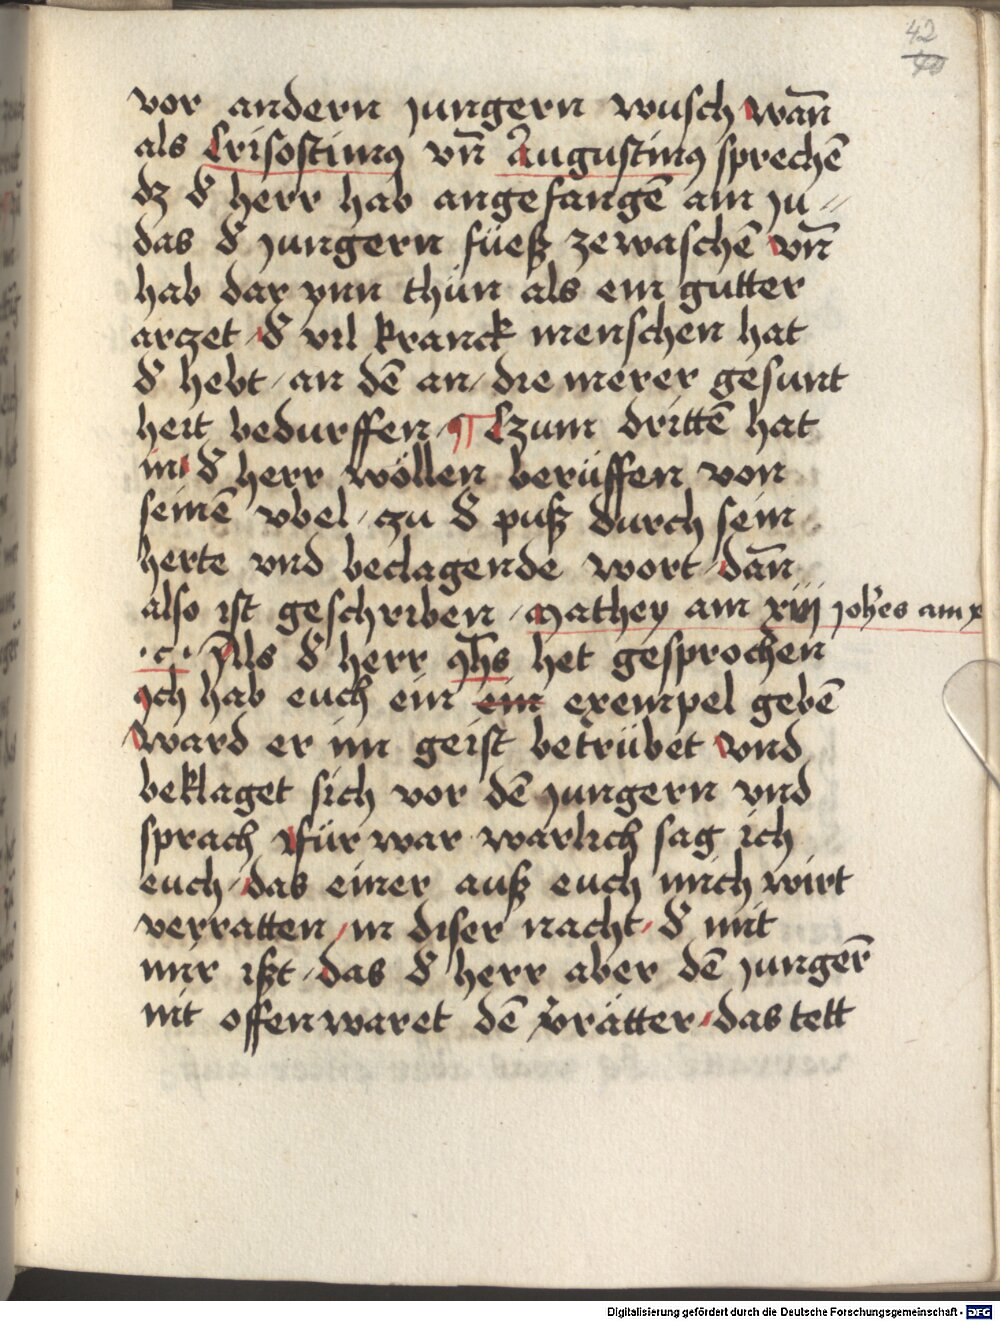 42
vor andern jungern wusch wan̄
als Crisostimꝰ vn̄ Augustinꝰ sprechē
dz d̕ herr hab angefangē am ju⸗
das d̕ jungern füeß ze waschē vn̄
hab dar ynn thün als ein gutter
arczet / d̕ vil kranck menschen hat
d̕ hebt / an dē an / die merer gesunt
heit bedurffen / ¶ Czum dritten hat
in d̕ herr wöllen berüffen von
seinē vbel / czu d̕ puß durch sein
herte vnd beclagende wort / dan̄
also ist geschriben / Mathey am xiij joh̄es am x
·c· Als d̕ herr Jh̄s het gesprochen
Ich hab euch ein ein exempel gebē
Ward er im geist betrübet vnd
beklaget sich vor dē jungern vnd
sprach / für war warlich sag ich
euch / das einer auß euch mich wirt
verratten / in diser nacht / d̕ mit
mir ißt / das d̕ herr aber dē junger̄
nit offenwaret dē v̕rätter / das tett
Digitalisierung gefördert durch die Deutsche Forschungsgemeinschaft - DFG